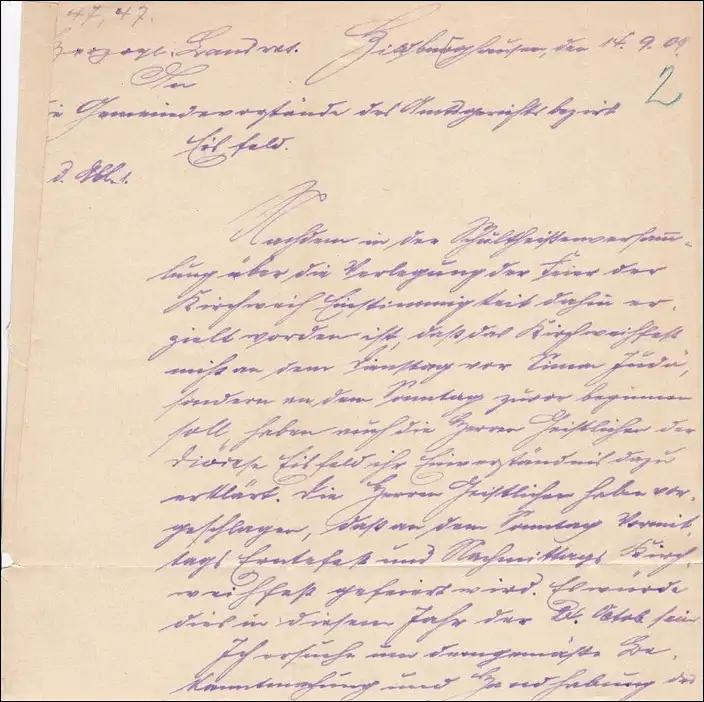 47, 47.
Herzogl. Landrat. Hildburghausen, den 14. 9. 08.
2
An
die Gemeindevorstände des Amtsgerichtsbezirk
Eisfeld.
d. Abl. 1.
Nachdem in der Schultheißenversamm-
lung über die Verlegung der Feier der
Kirchweih Einstimmigkeit dahin er-
zielt worden ist, daß das Kirchweihfest
nicht an dem Dienstag vor Simon Judä,
sondern an dem Sonntag zuvor beginnen
soll, haben auch die Herren Geistlichen der
Diözese Eisfeld ihr Einverständnis dazu
erklärt. Die Herren Geistlichen haben vor-
geschlagen, daß an dem Sonntag Vormit-
tags Erntefest und Nachmittags Kirch-
weihfest gefeiert wird. Es würde
dies in diesem Jahr der Octob. sein
Ich ersuche um demgemäße Be-
kanntmachung und Handhabung des